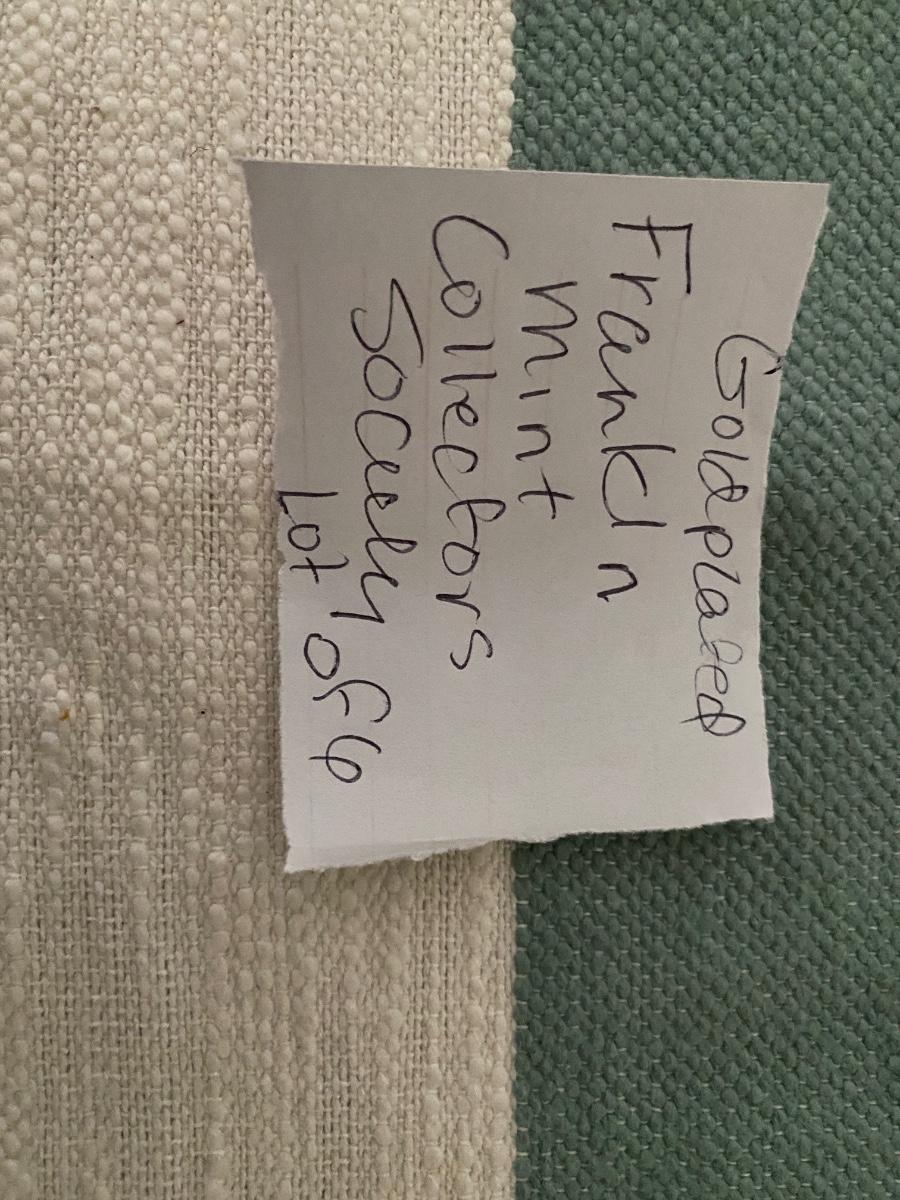 Goldplated
Franklin
mint
Collectors
Society
Lot of 6